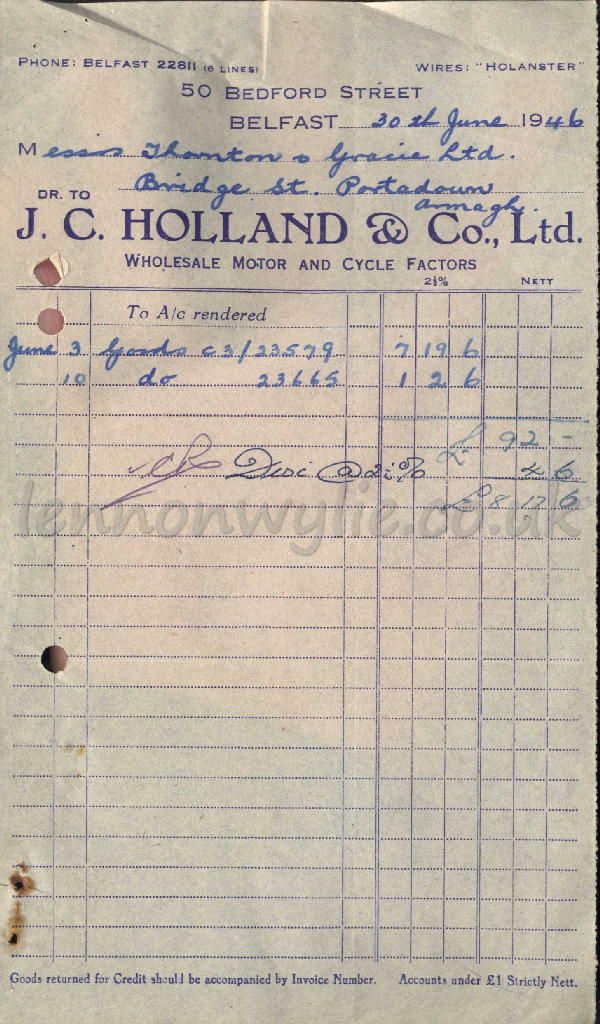 PHONE: BELFAST 22811 (6 LINES) WIRES: "HOLANSTER"
50 BEDFORD STREET
BELFAST 30th June 1946
Messrs Thornton & Gracie Ltd.
Bridge St. Portadown
Armagh.
DR. TO
J. C. HOLLAND & Co., Ltd.
WHOLESALE MOTOR AND CYCLE FACTORS
2½% NETT
To A/c rendered
June 3 Goods C3/23579 7 19 6
10 do 23665 1 2 6
£ 9 2 -
Disc @ 2½% 4 6
£ 8 17 6
lennonwylie.co.uk
Goods returned for Credit should be accompanied by Invoice Number. Accounts under £1 Strictly Nett.